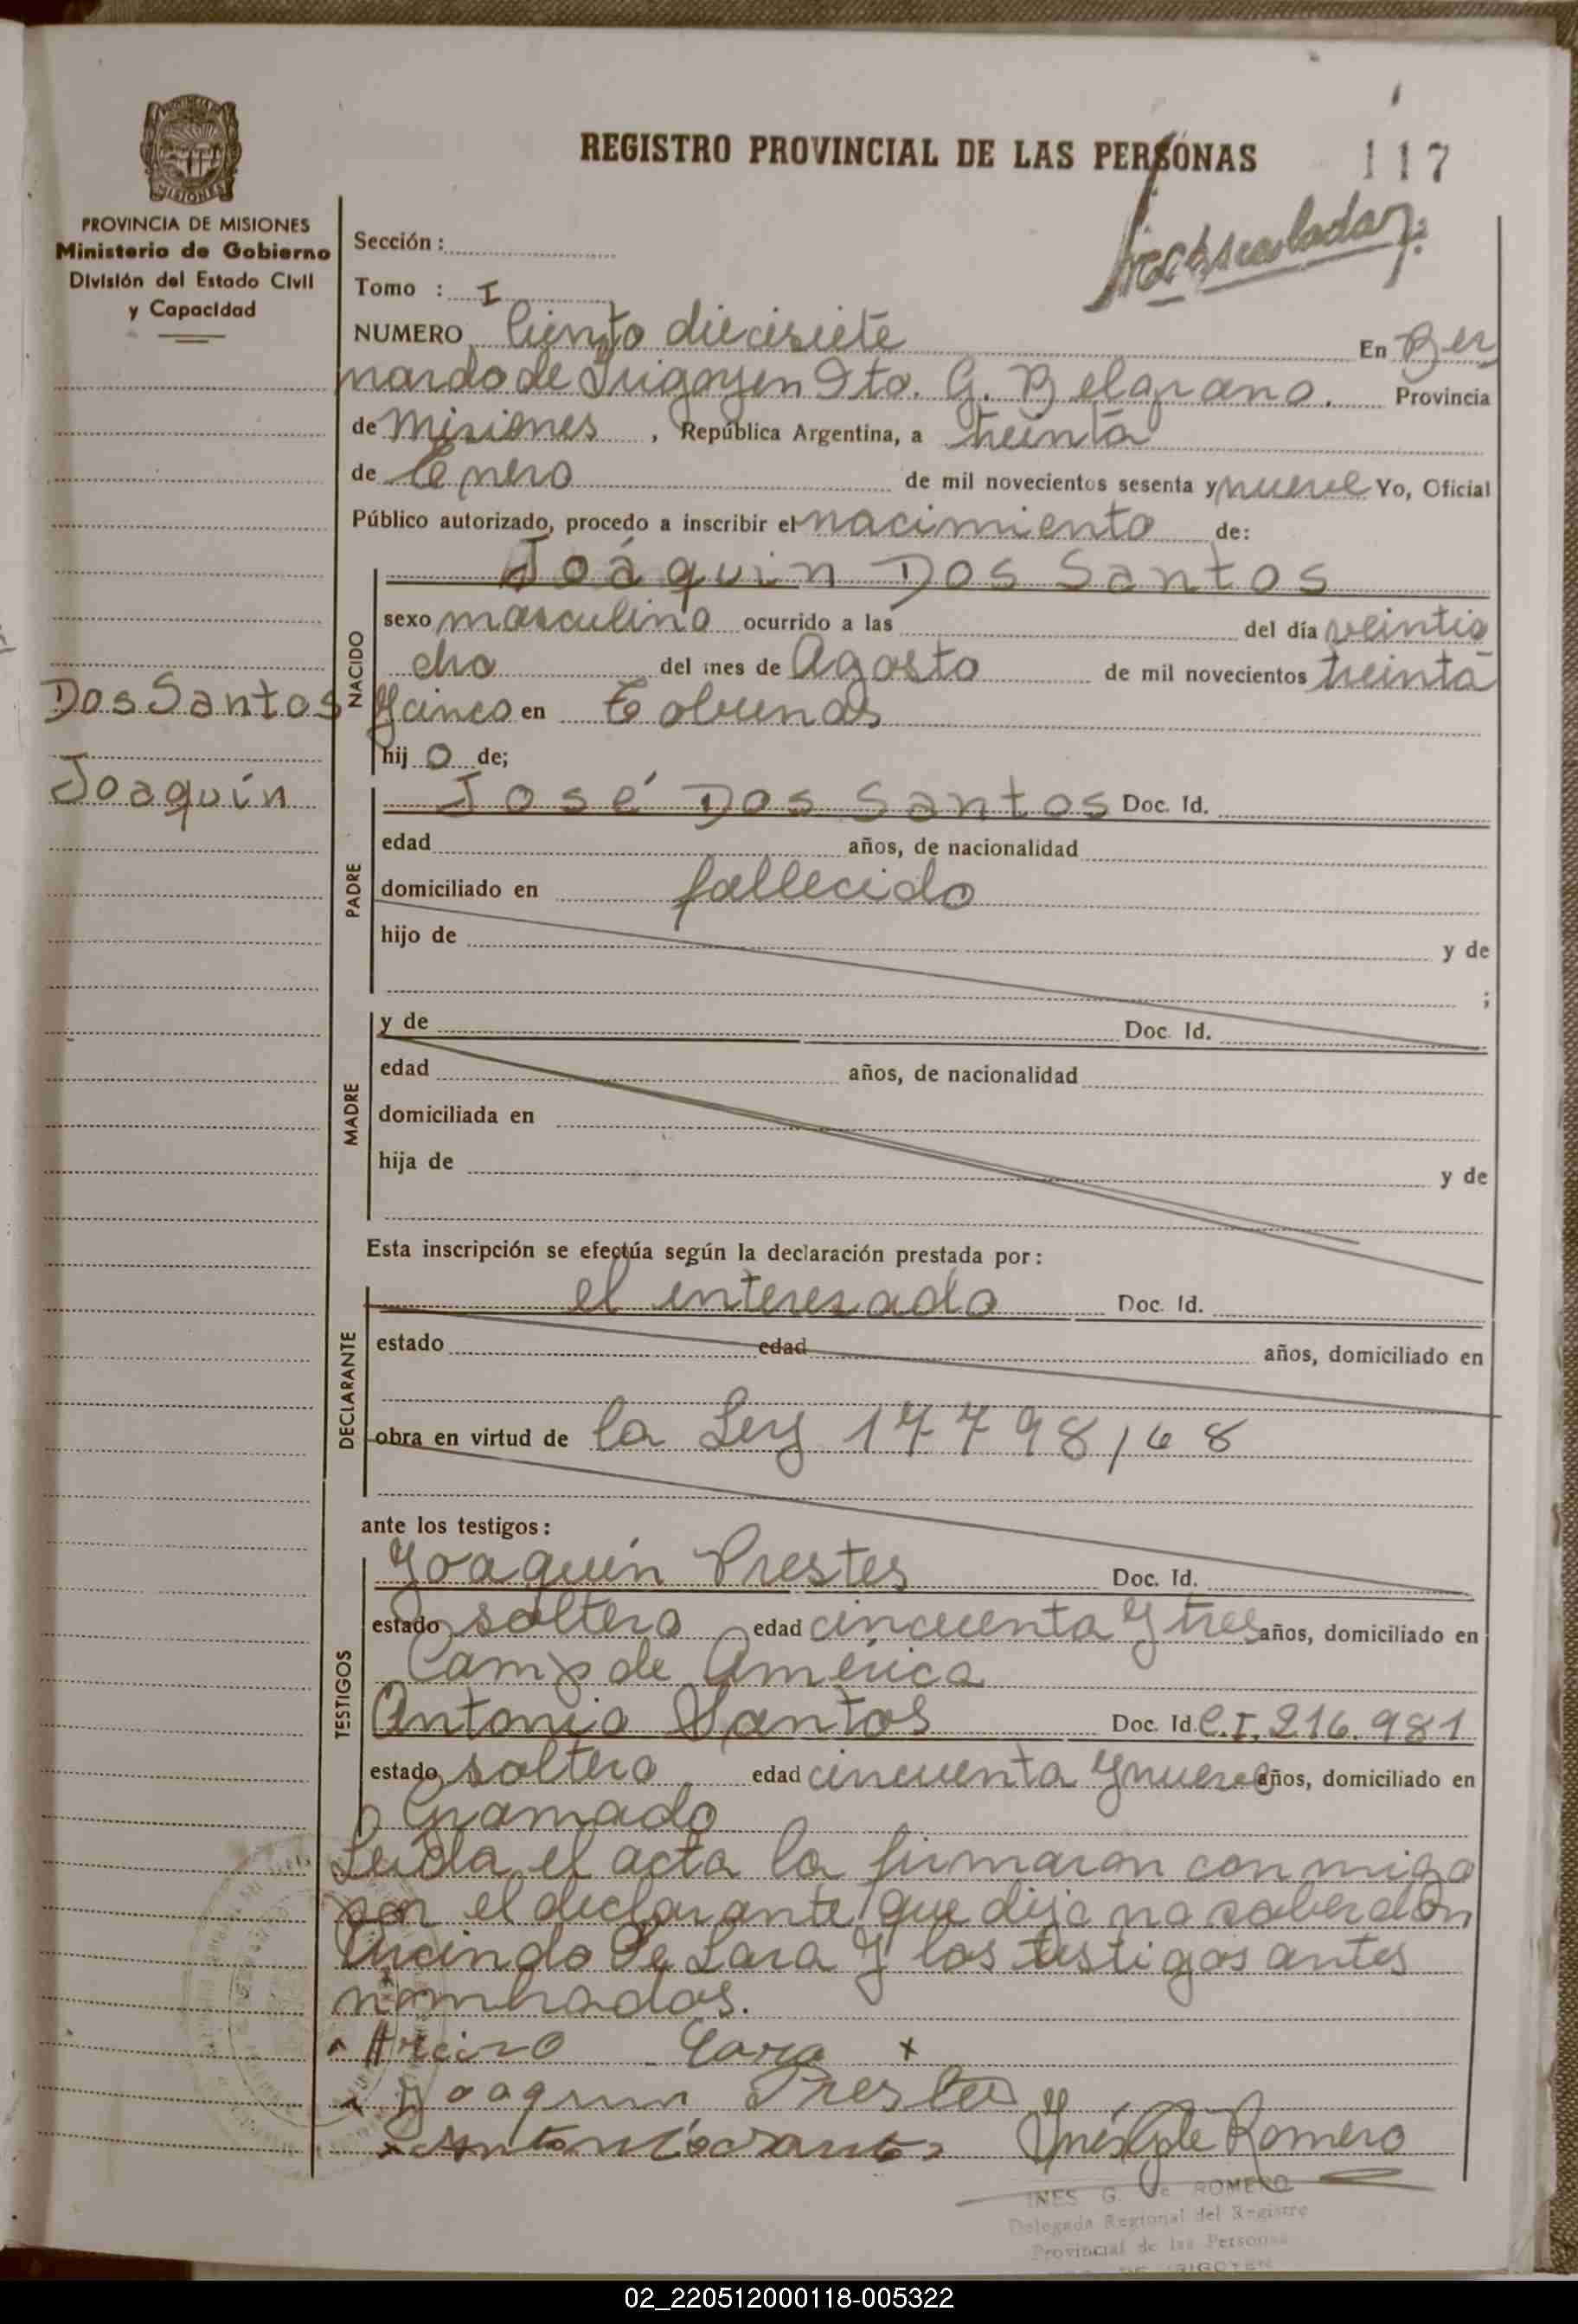 REGISTRO PROVINCIAL DE LAS PERSONAS
117
PROVINCIA DE MISIONES
Ministerio de Gobierno
División del Estado Civil
y Capacidad
Sección:
Tomo : I
NUMERO Ciento diecisiete En Ber
nardo de Irigoyen Dto. G. Belgrano. Provincia
de Misiones, República Argentina, a treinta
de Enero de mil novecientos sesenta y nueve Yo, Oficial
Público autorizado, procedo a inscribir el nacimiento de:
NACIDO
Joáquin Dos Santos
sexo masculino ocurrido a las del día veintio
cho del mes de Agosto de mil novecientos treinta
Dos Santos
y cinco en Tobunas
hijo de;
Joaquín
PADRE
José Dos Santos Doc. Id.
edad años, de nacionalidad
domiciliado en fallecido
hijo de y de
;
MADRE
y de Doc. Id.
edad años, de nacionalidad
domiciliada en
hija de y de
Esta inscripción se efectúa según la declaración prestada por:
DECLARANTE
el interesado Doc. Id.
estado edad años, domiciliado en
obra en virtud de la Ley 17798/68
ante los testigos:
TESTIGOS
Joaquín Prestes Doc. Id.
estado soltero edad cincuenta y tres años, domiciliado en
Camp de América
Antonio Santos Doc. Id. C.I. 216.981
estado soltero edad cincuenta y nueve años, domiciliado en
Gramado
Leida el acta la firmaron conmigo
por el declarante que dijo no saber don
de Lara y los testigos antes
nombrados.
Lara x
Joaquin Prestes
Antonio Santos Inés G de Romero
INES G. de ROMERO
Delegada Regional del Registro
Provincial de las Personas
IRIGOYEN
02_220512000118-005322